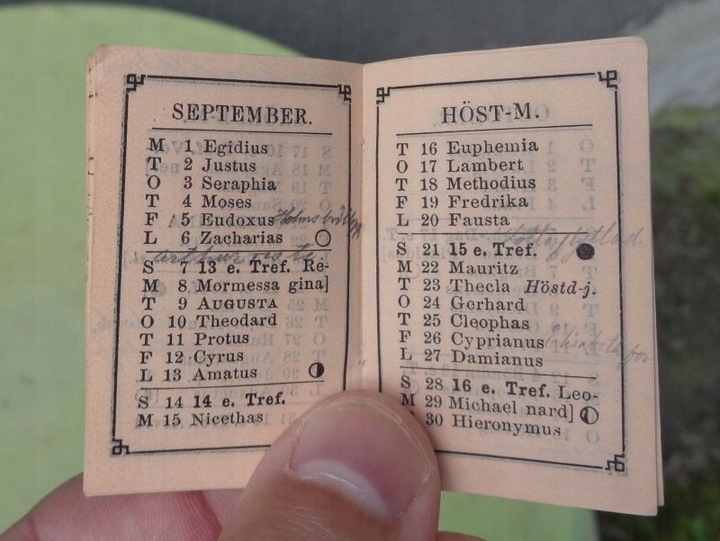 SEPTEMBER.
M 1 Egidius
T 2 Justus
O 3 Seraphia
T 4 Moses
F 5 Eudoxus
L 6 Zacharias
S 7 13 e. Tref. Re-
M 8 Mormessa gina]
T 9 AUGUSTA
O 10 Theodard
T 11 Protus
F 12 Cyrus
L 13 Amatus
S 14 14 e. Tref.
M 15 Nicethas
HÖST-M.
T 16 Euphemia
O 17 Lambert
T 18 Methodius
F 19 Fredrika
L 20 Fausta
S 21 15 e. Tref.
M 22 Mauritz
T 23 Thecla Höstd-j.
O 24 Gerhard
T 25 Cleophas
F 26 Cyprianus
L 27 Damianus
S 28 16 e. Tref. Leo-
M 29 Michael nard]
30 Hieronymus